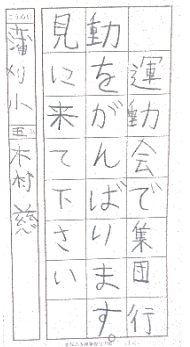 運動会で集団行
動をがんばります。
見に来て下さい
蒲刈小 五 木村 慈